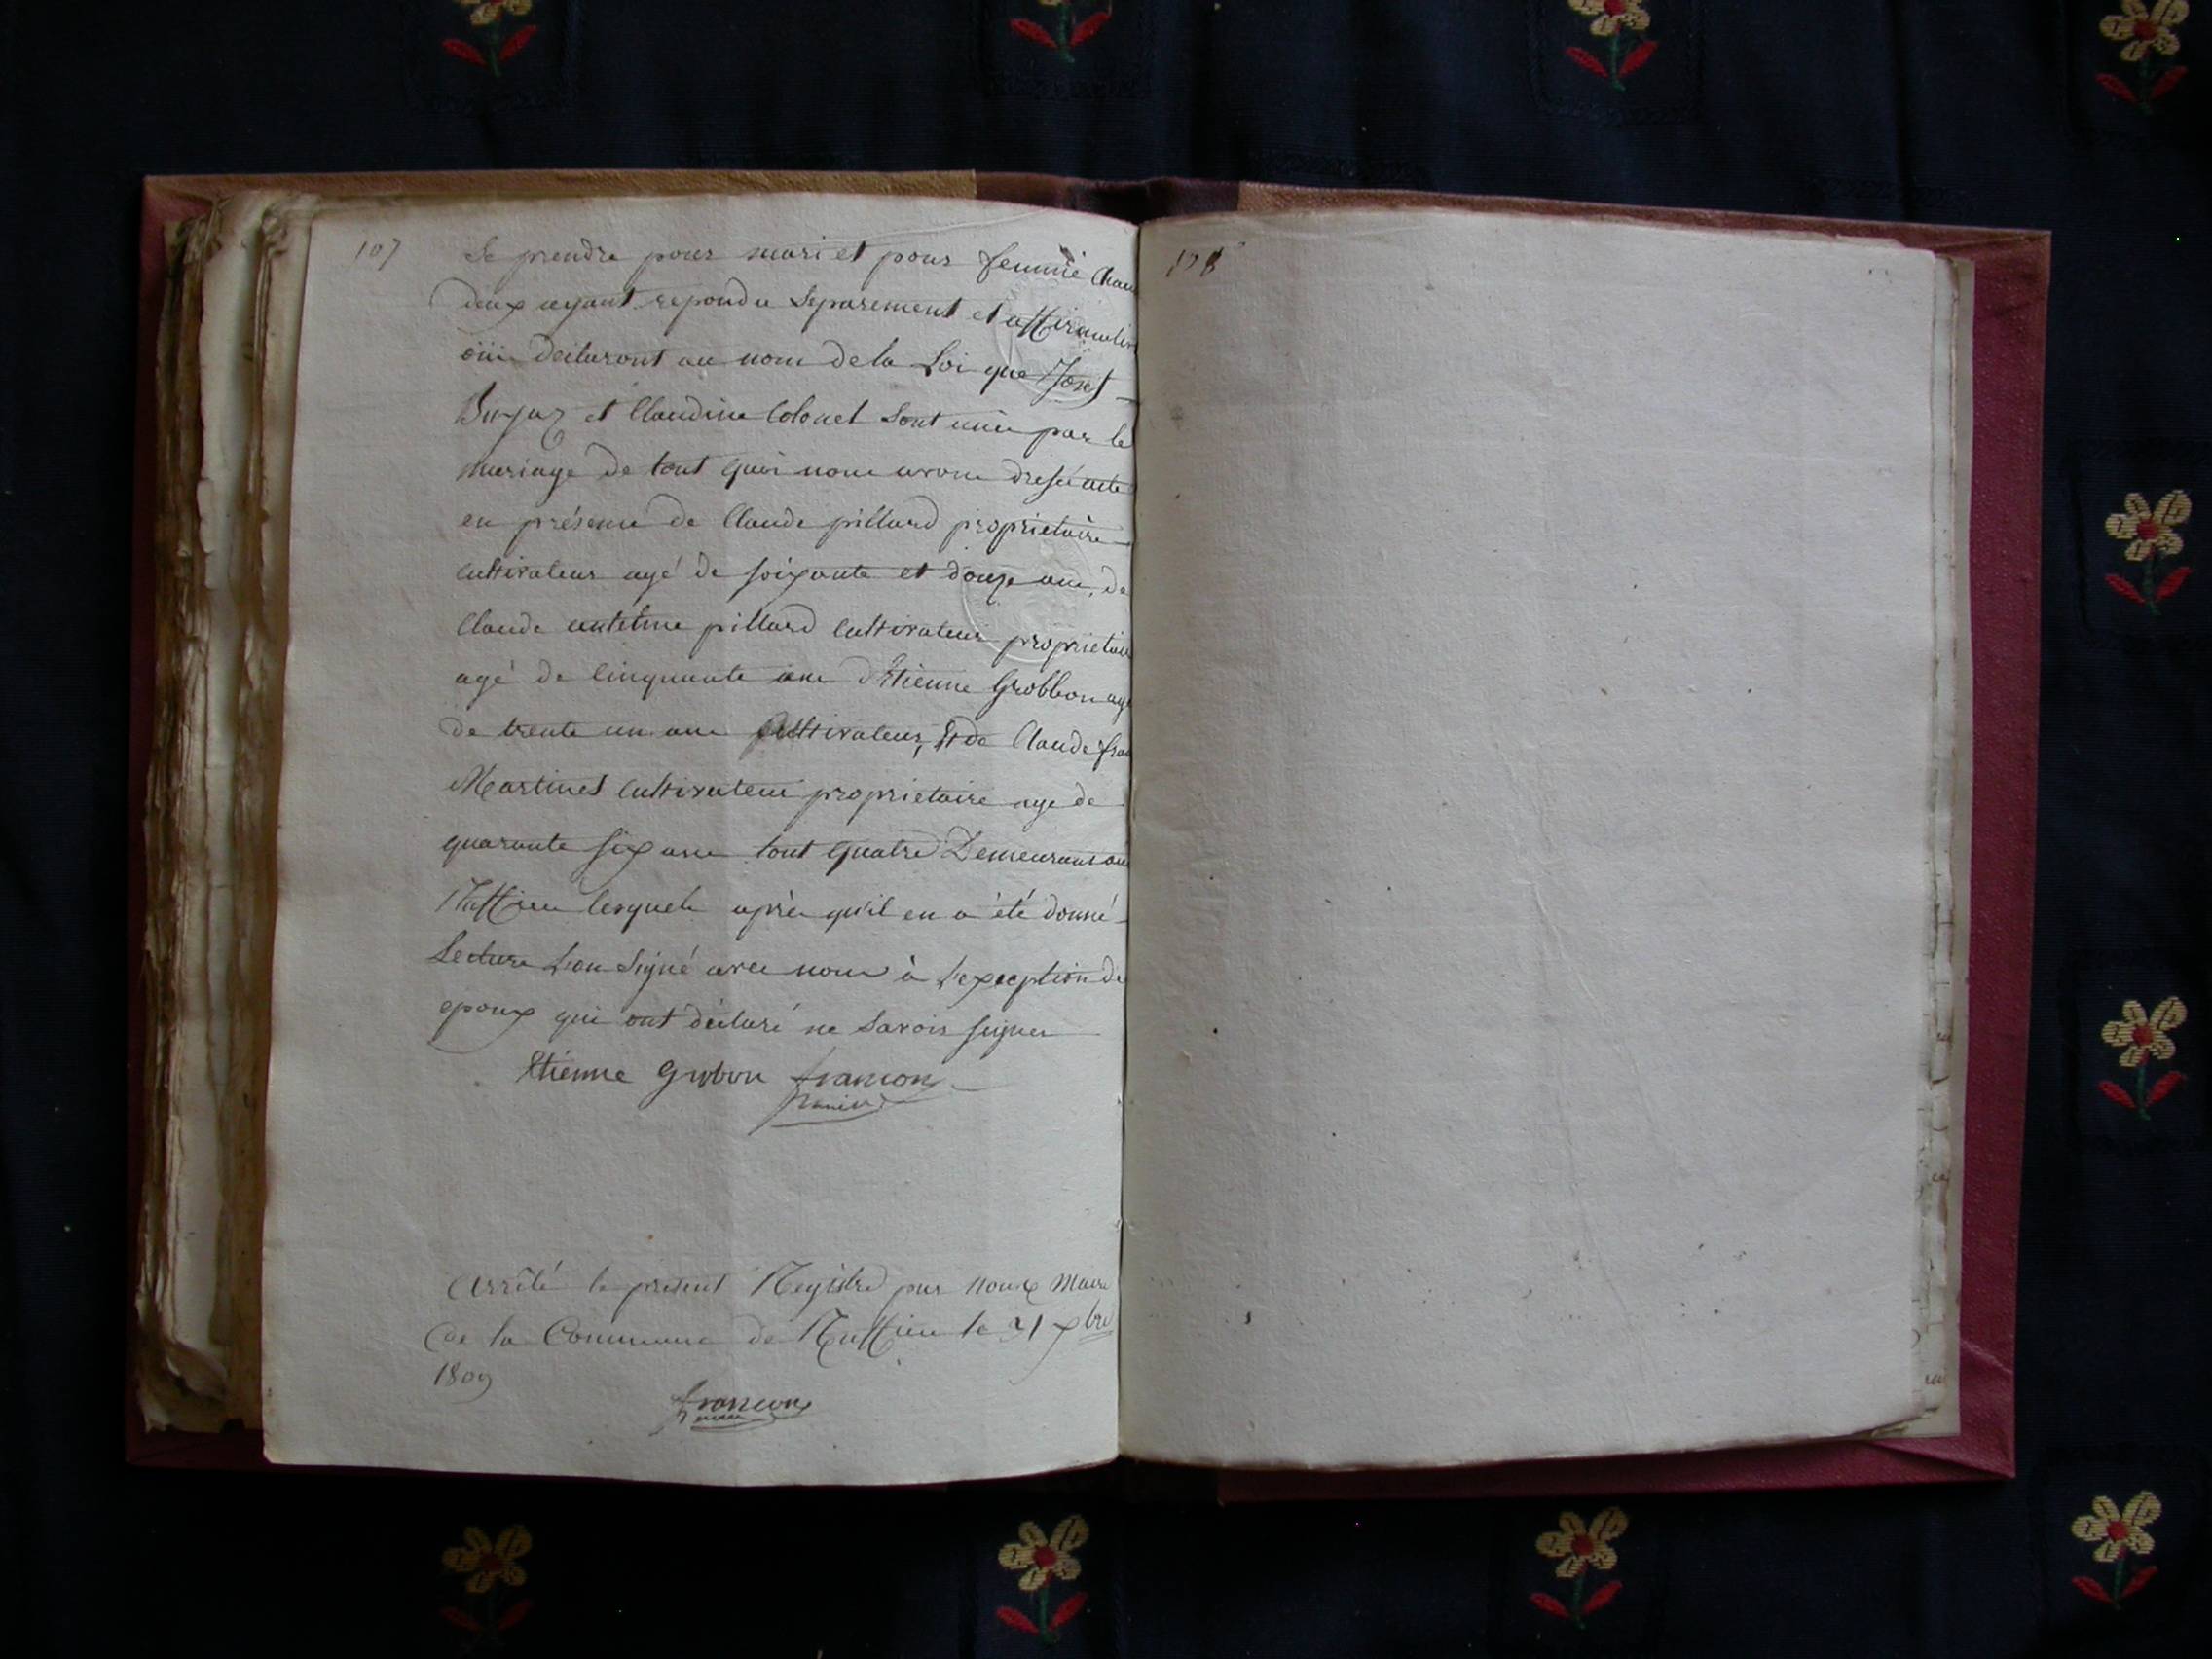 107
Se prendre pour mari et pour femme Chacun
deux ayant repondu Separement et affirmativ
oui declaront au nom de la Loi que Josef
et Claudine Colonel Sont unis par le
mariage de tout quoi nous avons dressé acte
en présence de Claude pillard proprietaire
cultivateur agé de soixante et douze ans, de
Claude antelme pillard cultivateur proprietaire
agé de Cinquante ans d'Etienne Grobbon agé
de trente un ans Cultivateur, Et de Claude fran
Martinet Cultivateur proprietaire agé de
quarante six ans tout quatre Demeurant au
Ruffieu lesquels après qu'il en a été donné
Lecture l'on Signé avec nous à l'exception de
epoux qui ont déclaré ne Savoir signer
Etienne Grobon francon
maire
Arrêté le présent Registre par nous Maire
de la Commune de Ruffieu le 31 xbre
1809
francon
maire
108